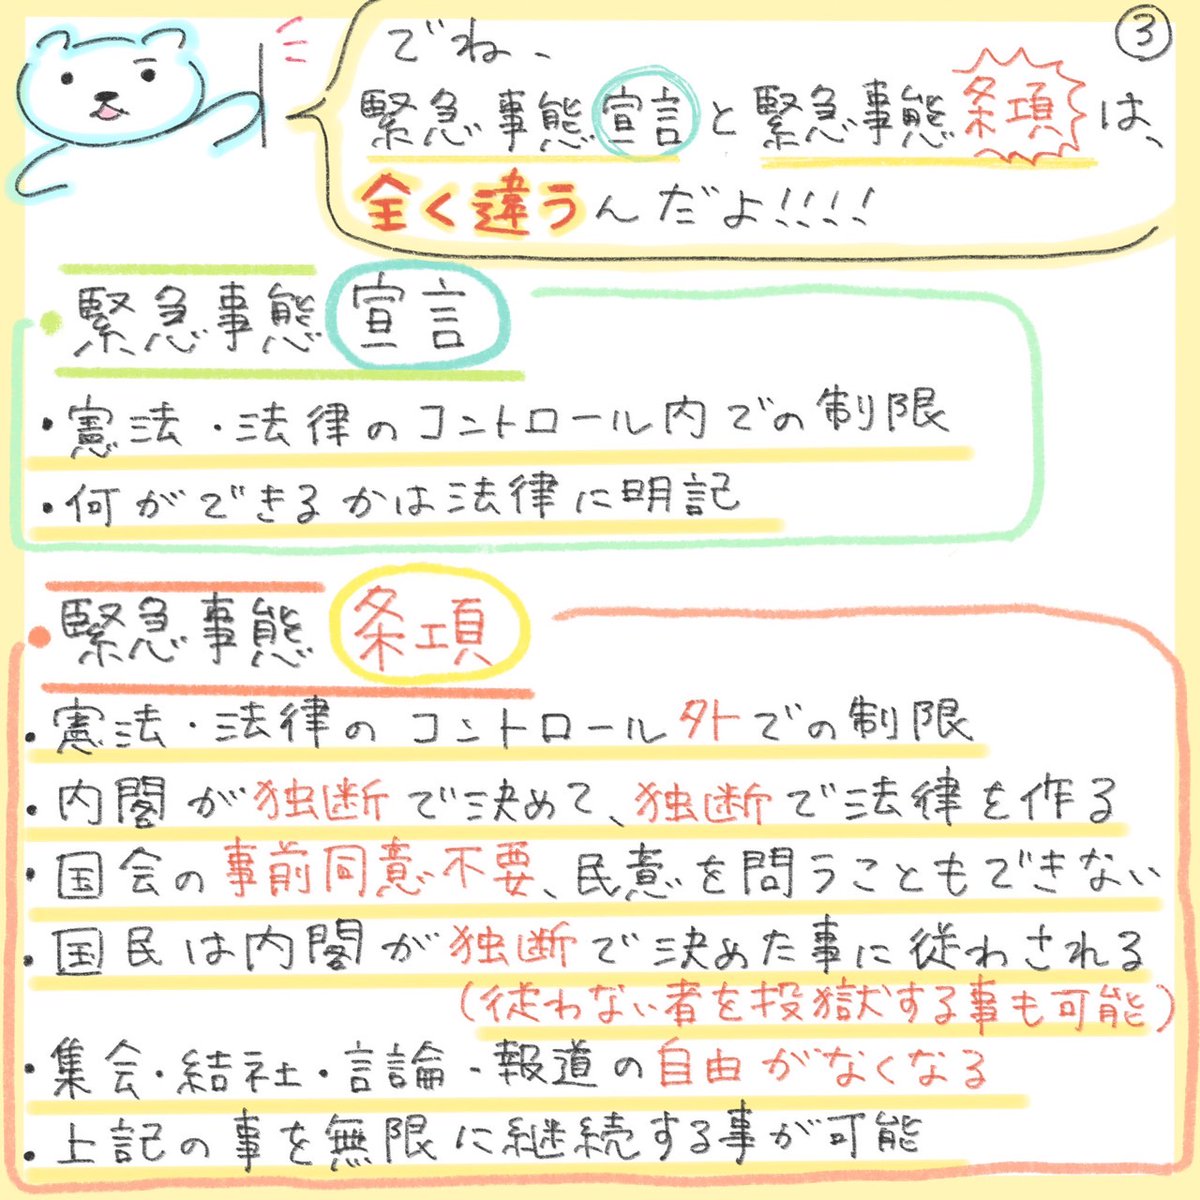 ③
でね、
緊急事態宣言と緊急事態条項は、
全く違うんだよ!!!!
緊急事態宣言
・憲法・法律のコントロール内での制限
・何ができるかは法律に明記
緊急事態条項
・憲法・法律のコントロール外での制限
・内閣が独断で決めて、独断で法律を作る
・国会の事前同意不要、民意を問うこともできない
・国民は内閣が独断で決めた事に従わされる
(従わない者を投獄する事も可能)
・集会・結社・言論・報道の自由がなくなる
・上記の事を無限に継続する事が可能